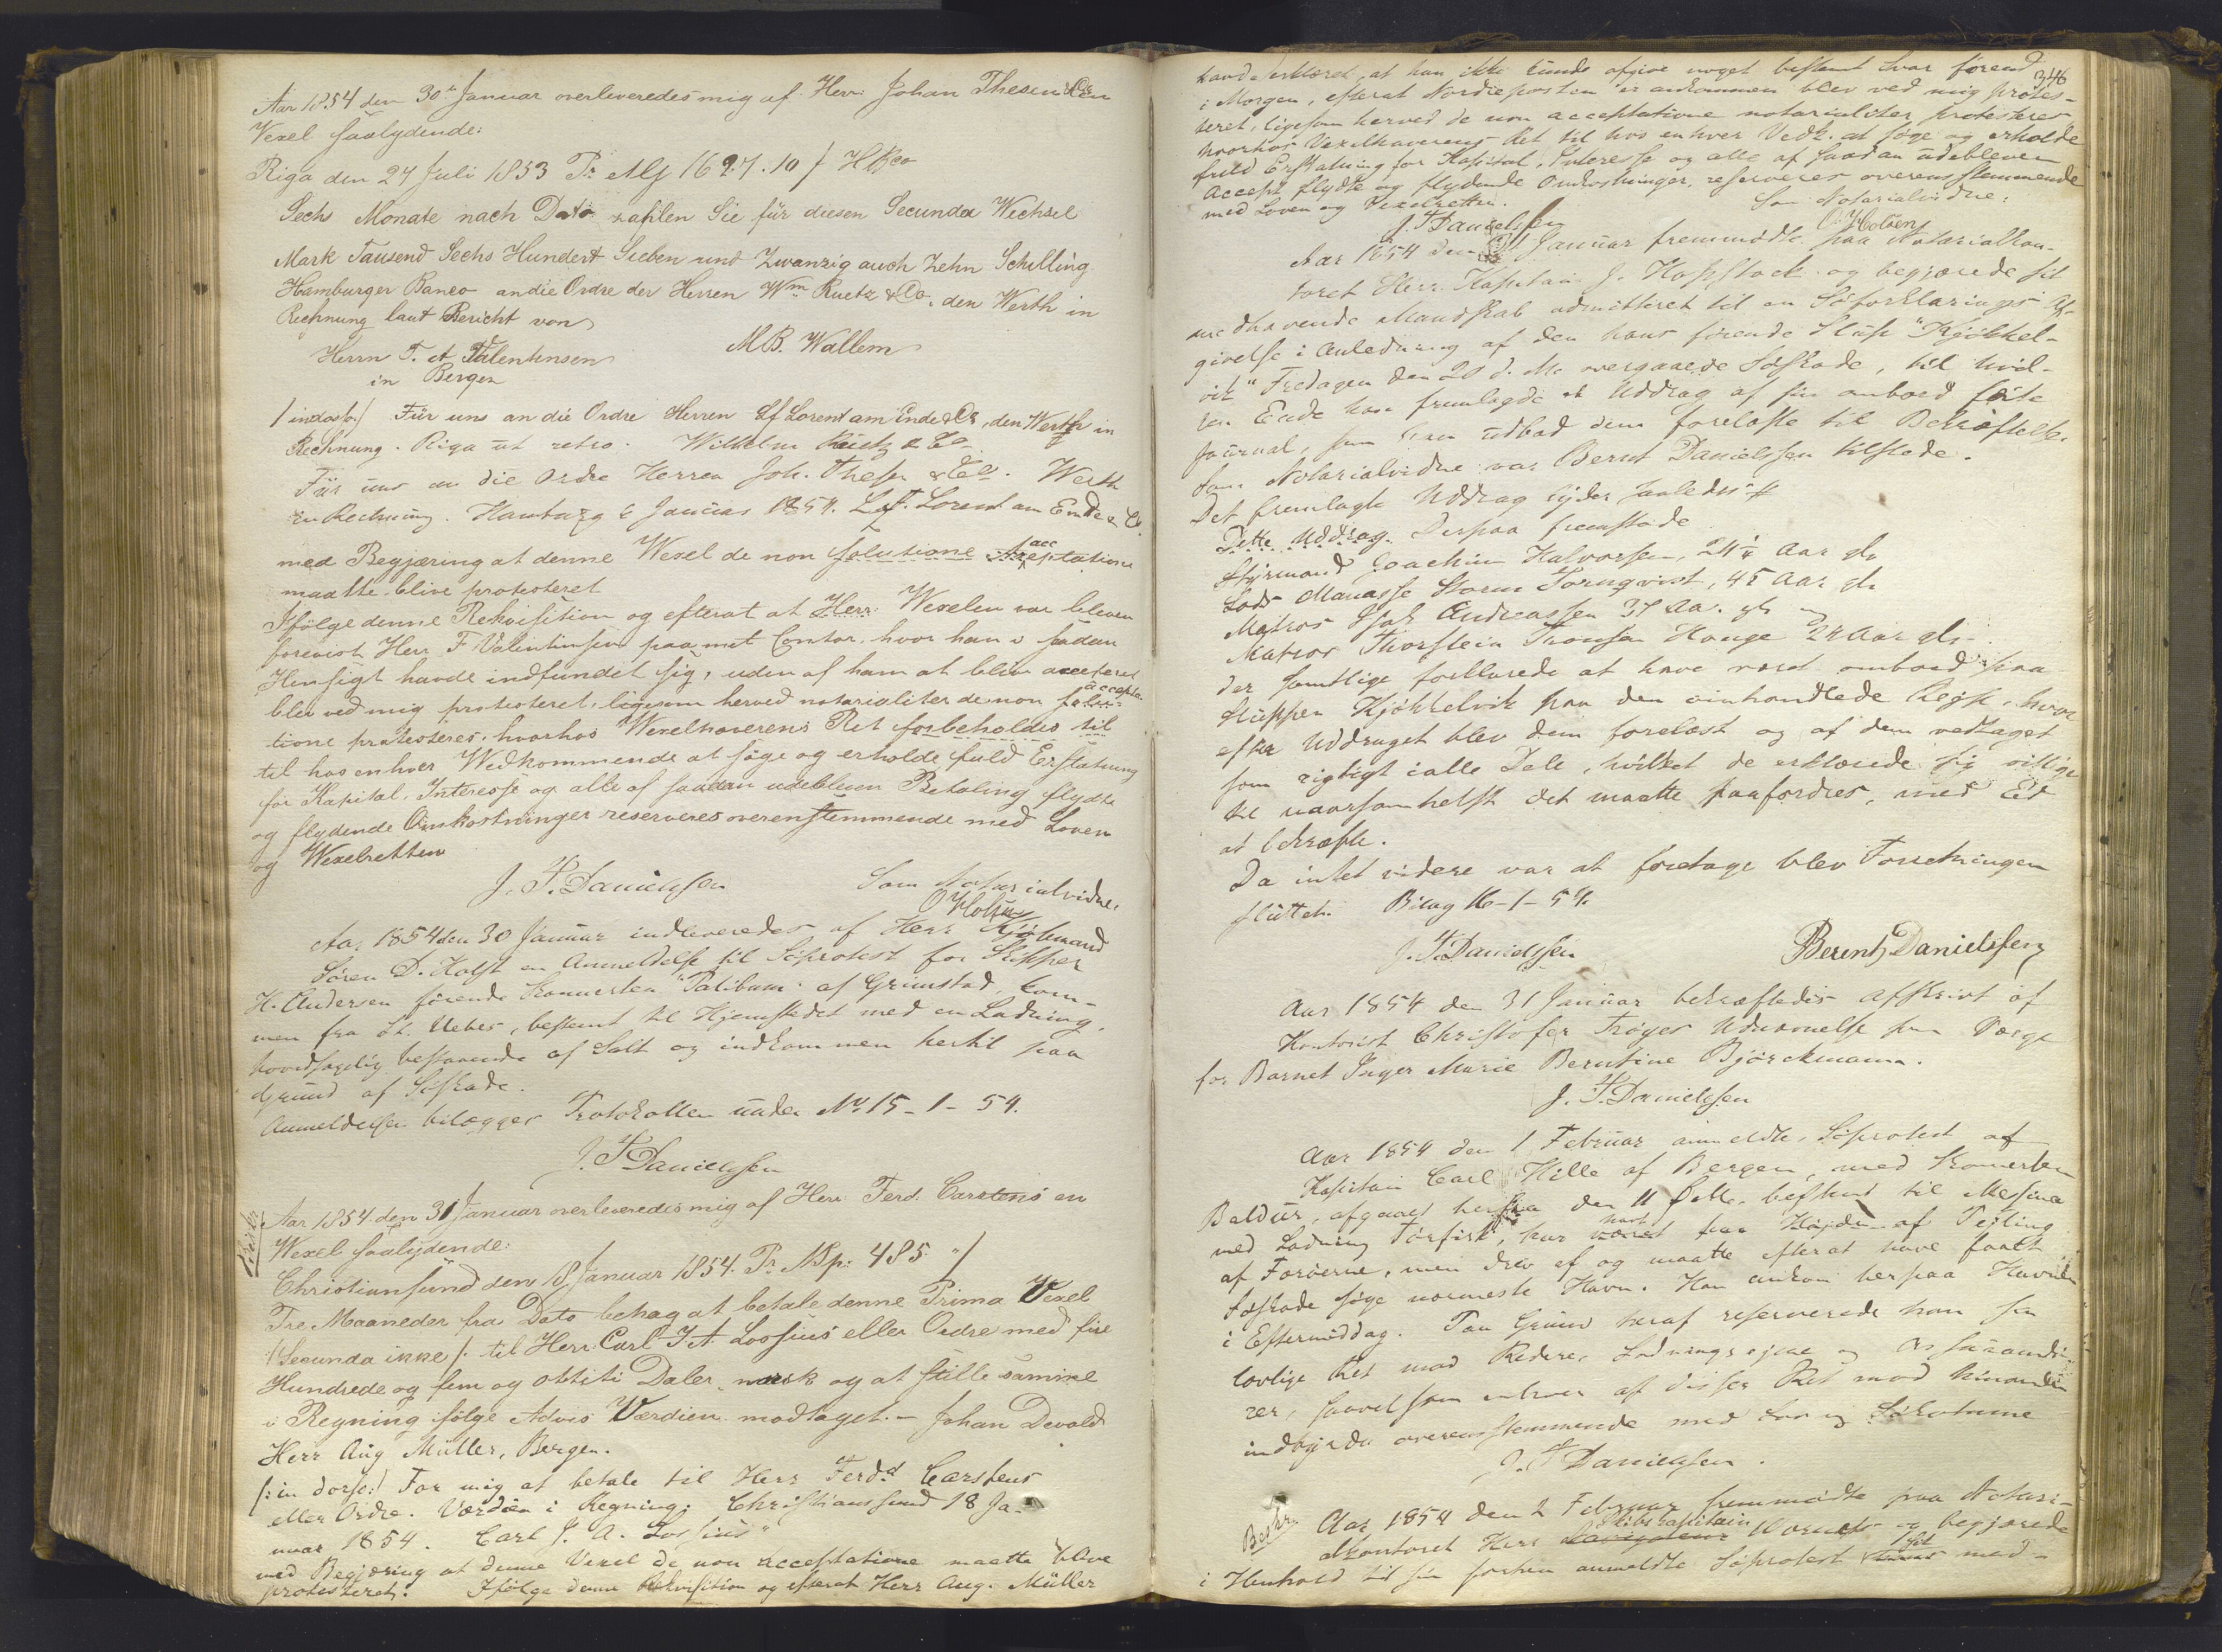 Aar 1854 den 30te Januar overleveredes mig af Herr Johan Thesen & Co en
Vexel saalydende:
Riga den 24 Juli 1853 Pr Mℓ 1627.10 / H Bco
Sechs Monate nach Dato zahlen Sie für diesen Secunda Wechsel
Mark Tausend Sechs Hundert Sieben und Zwanzig auch Zehn Schilling
Hamburger Banco an die Ordre der Herren Wm Ruetz & Co, den Werth in
Rechnung laut Bericht von
Herrn F. et Valentinsen M B. Wallem
in Bergen
/ indosso / Für uns an die Ordre Herren Lf Lorent am Ende & Co, den Werth in
Rechnung. Riga ut retro. Wilhelm Ruetz & Co
Für uns an die Ordre Herren Joh. Thesen & Co. Werth
in Rechnung. Hamburg 6 Januar 1854. L.f. Lorent am Ende & Co.
med Begjæring at denne Wexel de non solutione acceptatione
maatte blive protesteret
Ifölge denne Rekvisition og efterat at Herr Wexelen var bleven
forevist Herr F Valentinsen paa mit Contor, hvor han i saadan
Hensigt havde indfundet sig, uden af ham at blive accepteret
blev ved mig protesteret, ligesom herved notarialiter de non accepta-
tione protesteres, hvorhos Wexelhaverens Ret forbeholdes til
til hos enhver Wedkommende at söge og erholde fuld Erstatning
for Kapital, Interesse og alle af saadan udebleven Betaling flydte
og flydende Omkostninger reserveres overenstemmende med Loven
og Wexelretten
J. F. Danielssen Som Notarialvidne:
O Holsen
Aar 1854 den 30 Januar indleveredes af Herr Kjøbmand
Sören D. Holst en Anmeldelse til Söprotest for Skipper
H. Andersen förende Skonnerten "Talibum" af Grimstad, kom-
men fra St. Uebes, bestemt til Hjemstedet med en Ladning,
hovedsagelig bestaaende af Salt og indkommen hertil paa
Grund af Söskade.
Anmeldelsen bilægges Protokollen under No 15-1-54.
J. F. Danielssen
Aar 1854 den 31 Januar overleveredes mig af Herr Ferd. Carstens en
Wexel saalydende:
Christiansund den 18 Januar 1854. Pr Sp: 485 "/
Tre Maaneder fra Dato behag at betale denne Prima Vexel
(Secunda ikke) til Herr Carl J A Lossius eller Ordre med fire
Hundrede og fem og ottiti Daler norsk og at stille samme
i Regning ifölge Advis Værdien modtaget. – Johan Devold
Herr Aug Müller, Bergen.
/: in dorso:/ For mig at betale til Herr Ferdd Carstens
eller Ordre. Værdien i Regning. Christiansund 18 Ja-
nuar 1854. Carl J. A. Lossius"
med Begjæring at denne Vexel de non acceptatione maatte blive
protesteret. Ifölge denne Rekvisition og efterat Herr Aug. Müller
346
havde erklæret, at han ikke kunde afgive noget bestemt Svar förend
i Morgen, efterat Nordreposten er ankommen blev ved mig protes-
teret, ligesom herved de non acceptatione notarialiter protesteres
hvorhos Vexelhaverens Ret til hos enhver Vedk. at söge og erholde
fuld Erstatning for Kapital, Interesse og alle af saadan udebleven
Accept flydte og flydende Omkostninger, reserveres overensstemmende
med Loven og Vexelretten. Som Notarialvidne:
J. F. Danielssen O Holsen
Aar 1854 den 31 Januar fremmödte paa Notarialkon-
toret Herr Kapitain J. Kopstock og begjærede sit
medhavende Mandskab admitteret til en Söforklarings Af-
givelse i Anledning af den hans förende Slup "Kjökkel-
vik" Fredagen den 20 d. M. overgaaede Söskade, til hvil-
ken Ende han fremlagde et Uddrag af sin ombord förte
Journal, som han udbad dem forelæste til Bekræftelse.
Som Notarialvidne var Bernt Danielssen tilstede.
Det fremlagte Uddrag lyder saaledes #
Dette Uddrag. Derpaa fremstode
Styrmand Joachim Halvorsen, 24¼ Aar gl.
Lods Manasse Storm Tornqvist, 45 Aar gl.
Matros Isak Andreassen 37 Aa. gl. og
Matros Thorstein Hauge 22 Aar gl.
der samtlige forklarede at have været ombord paa
Sluppen Kjökkelvik paa den omhandlede Reise, hvor
efter Uddraget blev dem forelæst og af dem vedtaget
som rigtigt i alle Dele, hvilket de erklærede sig villige
til naarsomhelst det maatte paafordres, med Ed
at bekræfte.
Da intet videre var at foretage blev Forretningen
sluttet. Bilag 16-1-54.
J. F. Danielssen Berent Danielssen
Aar 1854 den 31 Januar bekræftedes Afskrivt af
Kontorist Christofer Tröyes Udnævnelse som Værge
for Barnet Inger Marie Berntine Björckmann.
J. F. Danielssen
Aar 1854 den 1 Februar anmeldte Söprotest af
Kapitain Carl Hille af Bergen, med Skonnerten
Baldur, afgaaet herfra den 11 bestemt til Messina
med Ladning Törfisk, har havt paa Höiden af Peiling
af Foröerne, men drev af og maatte efterat have faaet
Söskade söge nærmeste Havn. Han ankom her paa Havnen
i Eftermiddag. Paa Grund heraf reserverede han sin
lovlige Ret mod Redere, Ladningsejere og Assurandö-
rer, saavelsom enhver af disses Ret mod hinanden
indbyrdes overensstemmende med Lov og Sökutume
J. F. Danielssen.
Beskr. Aar 1854 den 2 Februar fremmödte paa Notari-
alkontoret Herr Skibskapitain og begjærede
i Henhold til sin forhen anmeldte Söprotest sit med-